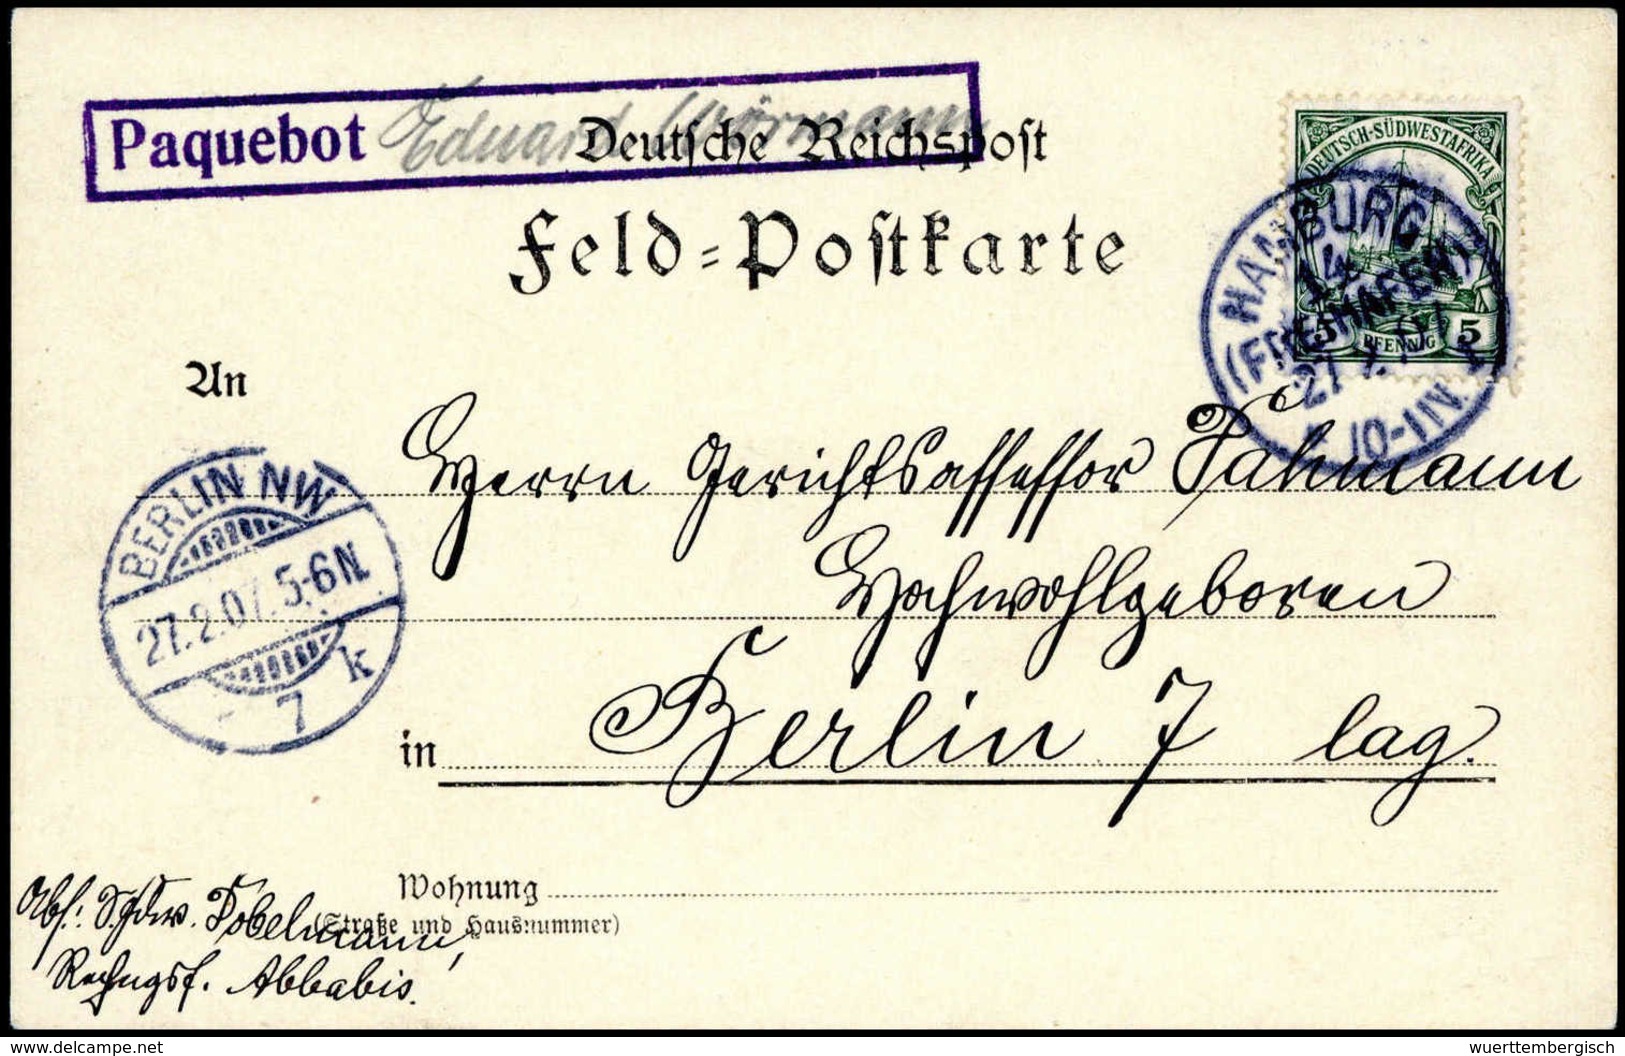 Paquebot Eduard Wörmann
Deutsche Reichspost
Feld-Postkarte
DEUTSCH-SÜDWESTAFRIKA
5 PFENNIG 5
HAMBURG
14
(FREIHAFEN)
27 2. 07
10-11V.
An
Herrn Gerichtsassessor
Hochwohlgeboren
in Berlin 7 lag.
BERLIN NW
27.2.07. 5-6N.
7 k
Wohnung
(Straße und Hausnummer)
Abs.: Tobelmann,
Abbabis.
© delcampe.net
wuerttembergisch